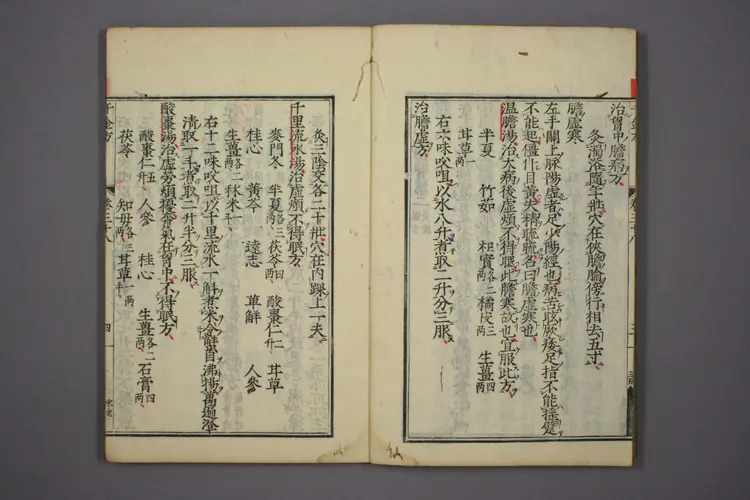 治胃中膽病方
灸濁浴隨年壯穴在俠膽腧傍行相去五寸
膽虛寒
左手關上脉陽虛者足少陽經也病苦眩厥痿足指不能搖躄
不能起僵仆目黃失精䀮䀮名曰膽虛寒也
温膽湯治大病後虛煩不得眠此膽寒故也宜服此方
半夏 竹茹 枳實各二兩 橘皮三兩 生薑四兩
甘草一兩
右六味㕮咀以水八升煮取二升分三服
治膽虛方
灸三陰交各二十壯穴在內踝上一夫
千里流水湯治虛煩不得眠方
麥門冬 半夏各三兩 茯苓四兩 酸棗仁二升 甘草
桂心 黃芩 遠志 萆薢 人參
生薑各二兩 秫米一升
右十二味㕮咀以千里流水一斛煮米令蟹目沸揚萬過澄
清取一斗煮取二升半分三服
酸棗湯治虛勞煩擾奔氣在胷中不得眠方
酸棗仁五升 人參 桂心 生薑各二兩 石膏四兩
茯苓 知母各三兩 甘草一兩半
千金方
卷三十八
四